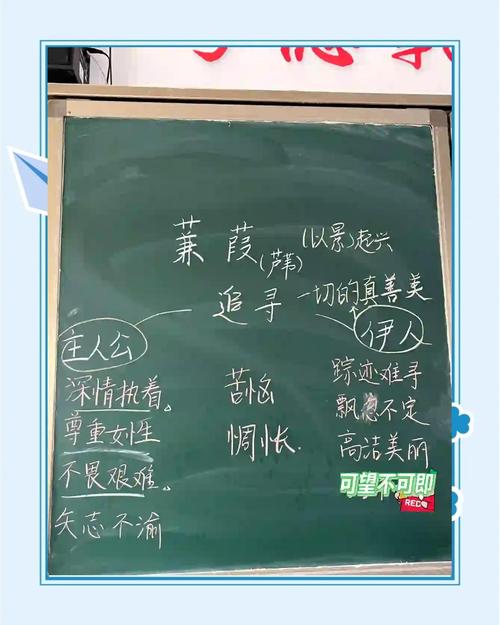 蒹葭 (以景)起兴
(芦苇)
追寻 一切的真善美
主人公 伊人
深情执着。 苦恼 踪迹难寻
尊重女性 惆怅. 飘忽不定
不畏艰难。 高洁美丽
可望不可即
RED
矢志不渝